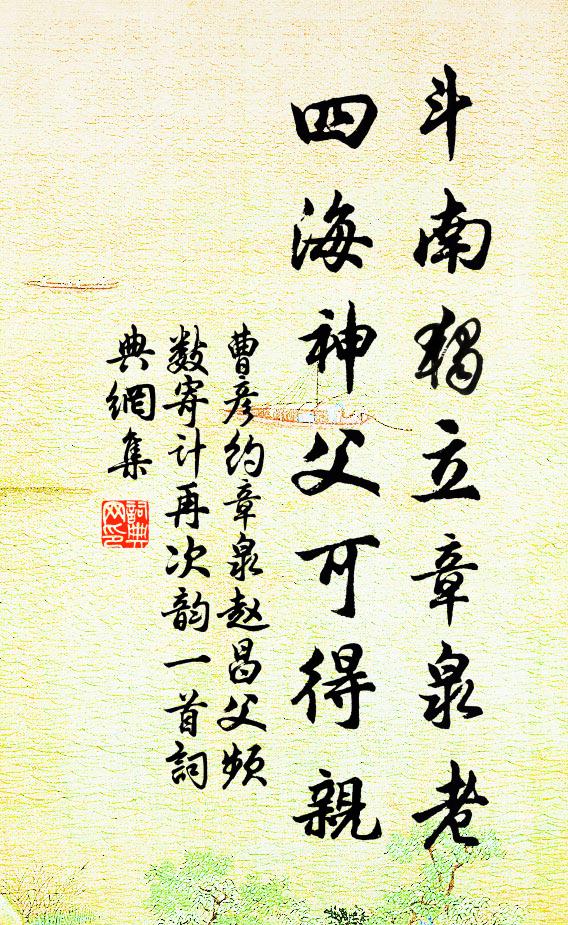 斗南独立章泉老
四海神父可得親
曹彦约章泉赵昌父频
数寄计再次韵一首詞
典網集
詞典网印